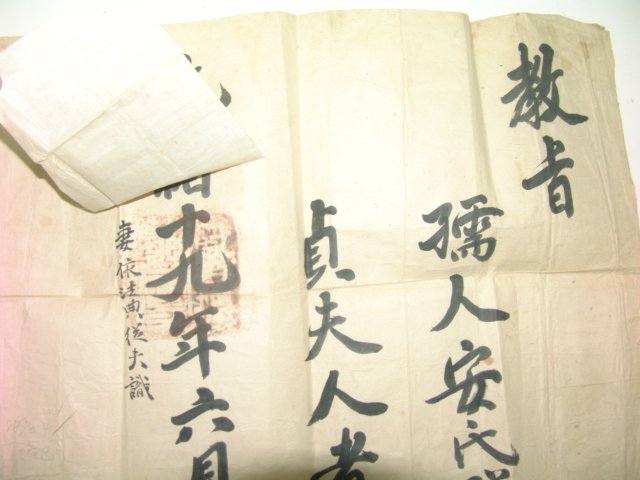 教旨
孺人安氏
貞夫人者
光緒十九年六月
妻依法典從夫職